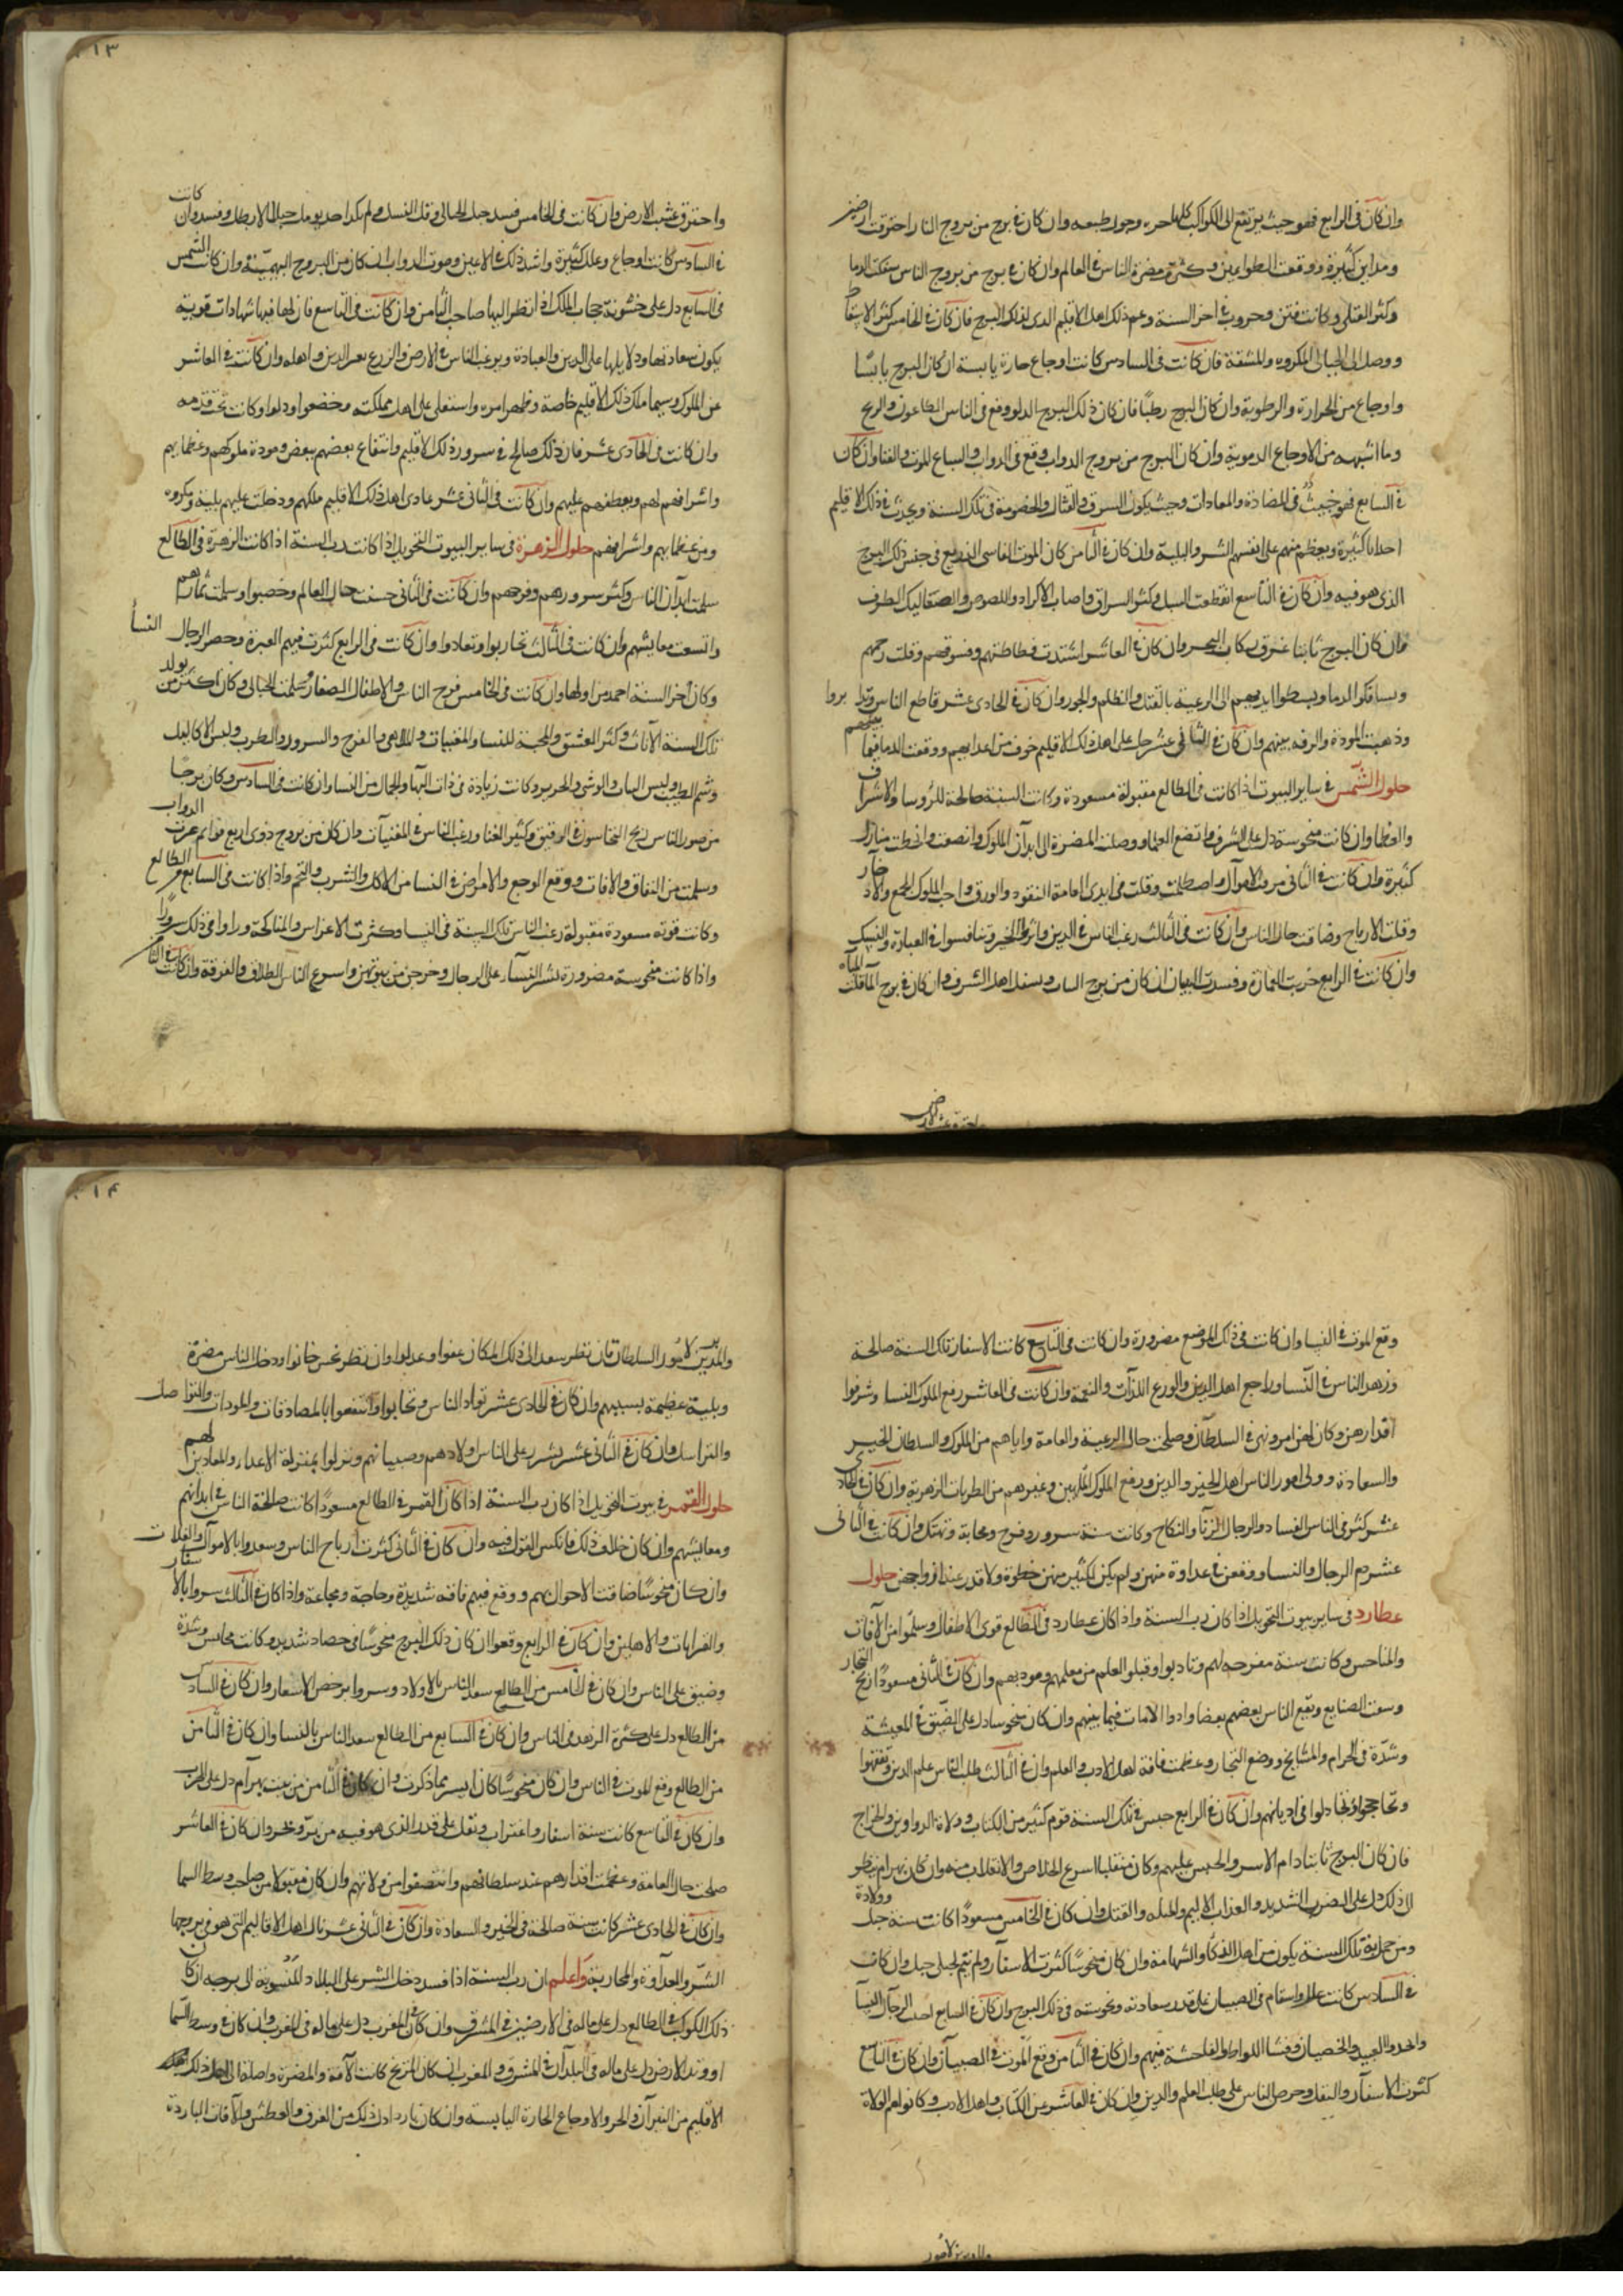 وان كان فى الرابع فهو حيث يرتفع الى الكواكب كلها لحره وحول طبعه وان كان فى برج من بروج النار احترقت ارضين
ومداين كثيرة ووقعت الطواعين وكثرة مضرة الناس فى العالم وان كان فى برج من بروج الناس سفكت الدما
وكثر القتلى وكانت فتن وحروب فى اخر السنة وعم ذلك اهل الاقليم الذى لذلك البرج فان كان فى الخامس كثر الاسقاط
ووصل الى الحبالى المكروه والمشقة فان كانت فى السادس كانت اوجاع حارة يابسة ان كان البرج يابسًا
واوجاع من الحرارة والرطوبة وان كان البرج رطبًا فان كان ذلك البرج الدلو وقع فى الناس الطاعون والريح
وما اشبهه من الاوجاع الدموية وان كان البرج من بروج الدواب وقع فى الدواب والسباع الموت والفنا وان كان
فى السابع فهو خبيث فى المضادة والمعادات وحيث يكون السرق والقتال والخصومة فى تلك السنة ويحدث فى ذلك الاقليم
احداثا كثيرة ويعظم منهم على انفسهم الشر والبلية وان كان فى الثامن كان الموت الفاشى الذريع فى جنس ذلك البرج
الذى هو فيه وان كان فى التاسع انقطعت السبل وكثر السراق واصاب الاكراد واللصوص والصعاليك الطرف
وان كان البرج ثابتا غرق ركاب البحر وان كان فى العاشر اشتدت فظاظتهم وفسوقهم وقلت رحمهم
وسافكوا الدما وبسطوا ايديهم الى الرعية بالقتل والظلم والجور وان كان فى الحادى عشر قاطع الناس وتدابروا
وذهبت المودة والرقه بينهم وان كان فى الثانى عشر دخل على اهل ذلك الاقليم خوف من اعدايهم ووقعت الدما فيما بينهم
حلول الشمس فى ساير البيوت اذا كانت فى الطالع مقبولة مسعودة وكانت السنة صالحة للرؤسا والاشراف
والعظما وان كانت منحوسة دل على الشرف واتضع العلما ووصلت المضرة الى ابدان الملوك وانصفت وانحطت منازل
كثيرة وان كانت فى الثانى مرقت الاموال واصطلمت وقلت فى ايدى العامة النقود والورق واحب الملوك الجمع والادخار
وقلت الارباح وضاقت حال الناس وان كانت فى الثالث رغب الناس فى الدين واثروا الخير وتنافسوا فى العبادة والنسك
وان كانت فى الرابع خربت العمارة وفسدت البنيان ان كان من برج النبات وسفل اهل الشرف وان كان فى برج الما قلت المياه
واحترق عشب الارض وان كانت فى الخامس فسد حبل الحبالى وقل النسل ولم يكد احد يومل حبلا الا بطل وفسد وان كانت
فى السادس كانت اوجاع وعلل كثيرة واشد ذلك فى الاعين وموت الدواب ان كان من البروج البهيمية وان كانت الشمس
فى السابع دل على خشونة جناب الملك اذا نظر اليها صاحب الثامن وان كانت فى التاسع فان لها فيها شهادات قوية
يكون سعادتها ودلايلها على الدين والعبادة ويرغب الناس فى الارض والزرع بعد الدين واهله وان كانت فى العاشر
عز الملوك وسيما ملك ذلك الاقليم خاصة وظهر امره واستعلى على اهل مملكته وخضعوا وذلوا وكانت تحت قدمه
وان كانت فى الحادى عشر فان ذلك صالح فى سرور ذلك الاقليم وانتفاع بعضهم ببعض ومودة ملوكهم وعظمايهم
واشرافهم لهم وتعطفهم عليهم وان كانت فى الثانى عشر عادى اهل ذلك الاقليم ملكهم ودخلت عليهم بلية ومكروه
ومن عظمايهم واشرافهم حلول الزهرة فى ساير البيوت التحويل اذا كانت رب السنة اذا كانت الزهرة فى الطالع
سلمت ابدان الناس وكثر سرورهم وفرحهم وان كانت فى الثانى حسنت حال العالم وخصبوا وسلمت ثمارهم
واتسعت معايشهم وان كانت فى الثالث تحاربوا وتعادوا وان كانت فى الرابع كثرت فيهم العبرة وحصر الرجال النسا
وكان اخر السنة احمد من اولها وان كانت فى الخامس فرح الناس والاطفال الصغار وسلمت الحبالى وكان اكثر من يولد
تلك السنة الاناث وكثر العشق والمحبة للنسا والمغنيات والملاهى والفرح والسرور والطرب ولبس الاكاليل
وشم الطيب ولبس الثياب والوشى والحرير وكانت زيادة فى ذات البها والجمال من النسا وان كانت فى السادس وكان برجا
من صور الناس ربح النخاسون فى الرقيق وكثير الغنا ورغب الناس فى المغنيات وان كان من بروج ذوى اربع قوايم عزت الدواب
وسلمت من النفاق والافات ووقع الوجع والامراض فى النسا من الاكل والشرب والتخم واذا كانت فى السابع من الطالع
وكانت قوية مسعودة مقبولة رغب الناس تلك السنة فى النسا وكثرت الاعراس والمناكحة وراوا فى ذلك سرورًا
واذا كانت منحوسة مضرورة نشر النسا على الرجال وخرجن من بيوتهن واسرع الناس الطلاق والفرقة وان كانت فى الثامن
وقع الموت فى النسا وان كانت فى ذلك الموضع مضرورة وان كانت فى التاسع كانت الاسفار تلك السنة صالحة
وزهد الناس فى النسا وراجع اهل الدين والورع اللذات والنعمة وان كانت فى العاشر رفع الملوك النسا وشرفوا
اقدارهن وكان لهن امر ونهى فى السلطان وصلحت حال الرعية والعامة واياهم من الملوك والسلطان الخير
والسعادة وولى امور الناس اهل الخير والدين ورفع الملوك الملهين وغيرهم من الطربات الزهرية وان كان فى الحادى
عشر كثر فى الناس الفساد والرجال الزنا والنكاح وكانت سنة سرور وفرح ومحابة وتهتك وان كانت فى الثانى
عشر صرم الرجال والنسا ووقعن فى عداوة منهن ولم يكن لكثير منهن حظوة ولا قدر عند ازواجهن حلول
عطارد فى ساير بيوت التحويل اذا كان رب السنة واذا كان عطارد فى الطالع قوى الاطفال وسلموا من الافات
والمناحس وكانت سنة مفرحه لهم وتادبوا وقبلوا العلم من معلمهم ومودبهم وان كان فى الثانى مسعودًا ربح التجار
وسعت الصنايع ونفع الناس بعضهم بعضا وادوا الامانات فيما بينهم وان كان منحوسا دل على الضيق فى المعيشة
وشدّة فى الحرام والمشايخ ووضع التجار وعظمت فاقة اهل الادب والعلم وان فى الثالث طلب الناس علم الدين وتفقهوا
وتحاججوا وتجادلوا فى اديانهم وان كان فى الرابع حبس فى تلك السنة قوم كثير من الكتاب وولاة الدواوين والخراج
فان كان البرج ثابتا دام الاسر والحبس عليهم وكان منقلبا اسرع الخلاص والانقلاب منه وان كان بهرام ينظر
الى ذلك دل على الضرب الشديد والعذاب الاليم والمثله والقتل وان كان فى الخامس مسعودًا كانت سنة حبل وولادة
ومن حمل به تلك السنة يكون من اهل الذكا والشهامة وان كان منحوسًا كثرت الاسفار ولم يتم لحبلى حبل وان كان
فى السادس كانت علل واسقام فى الصبيان على قدر سعادته ونحوسته فى ذلك البرج وان كان فى السابع احب الرجال النسا
واخدوا العبيد والخصيان وفشا اللواط والفاحشة فيهم وان كان فى الثامن وقع الموت فى الصبيان وان كان فى التاسع
كثرت الاسفار والنقل وحرص الناس على طلب العلم والدين وان كان فى العاشر عز الكتاب واهل الادب وكانوا هم الولاة
والمدبرين لامور السلطان فان نظر سعد الى ذلك المكان عفوا وعدلوا وان نظر نحس خانوا ودخل الناس مضرة
وبلية عظيمة بسببهم وان كان فى الحادى عشر تواد الناس وتحابوا وانتفعوا بالمصادقات والمودات والتواصل
والتراسل وان كان فى الثانى عشر نشر على الناس اولادهم وصبيانهم ونزلوا بمنزلة الاعداء والمعادين لهم
حلول القمر فى بيوت التحويل اذا كان رب السنة اذا كان القمر فى الطالع مسعودًا كانت صالحة الناس فى ابدانهم
ومعايشهم وان كان خلاف ذلك فانكس القول فيه وان كان فى الثانى كثرت ارباح الناس وسعدوا بالاموال والغلات
وان كان منحوسًا ضاقت الاحوال بهم ووقع فيهم فاقة شديدة وحاجة ومجاعة واذا كان فى الثالث سروا بالاسفار
والقرابات والاهلين وان كان فى الرابع وقعوا ان كان ذلك البرج منحوسًا فى حصاد شديد وكانت محابس وشدة
وضيق على الناس وان كان فى الخامس من الطالع سعد الناس بالاولاد وسروا برخص الاسعار وان كان فى السادس
من الطالع دل على كثرة الزهد فى الناس وان كان فى السابع من الطالع سعد الناس بالنسا وان كان فى الثامن
من الطالع وقع الموت فى الناس وان كان منحوسًا كان ايسر مما ذكرت وان كان فى الثامن من بيت بهرام دل على الحرب
وان كان فى التاسع كانت سنة اسفار واغتراب ونقل على قدر الذى هو فيه من برّ وبحر وان كان فى العاشر
صلحت حال العامة وعظمت اقدارهم عند سلطانهم وانتصفوا من ولاتهم وان كان مقبولا من صاحب وسط السما
وان كان فى الحادى عشر كانت سنة صالحة فى الخير والسعادة وان كان فى الثانى عشر نال اهل الاقاليم التى هو فى بروجها
الشرّ والعداوة والمحاربة واعلم ان رب السنة اذا فسد دخل الشر على البلاد المنسوبة الى برجه ان كان
ذلك الكوكب فى الطالع دل على ماله فى الارضين فى المشرق وان كان فى المغرب دل على ماله فى المغرب وان كان فى وسط السما
او وتد الارض دل على ماله فى البلدان فى المشرق والمغرب ان كان المريخ كانت الافة والمضرة واصلة الى اهل ذلك
الاقليم من النيران والحر والاوجاع الحارة اليابسة وان كان باردا دل ذلك من الغرق والعطش والآفات الباردة